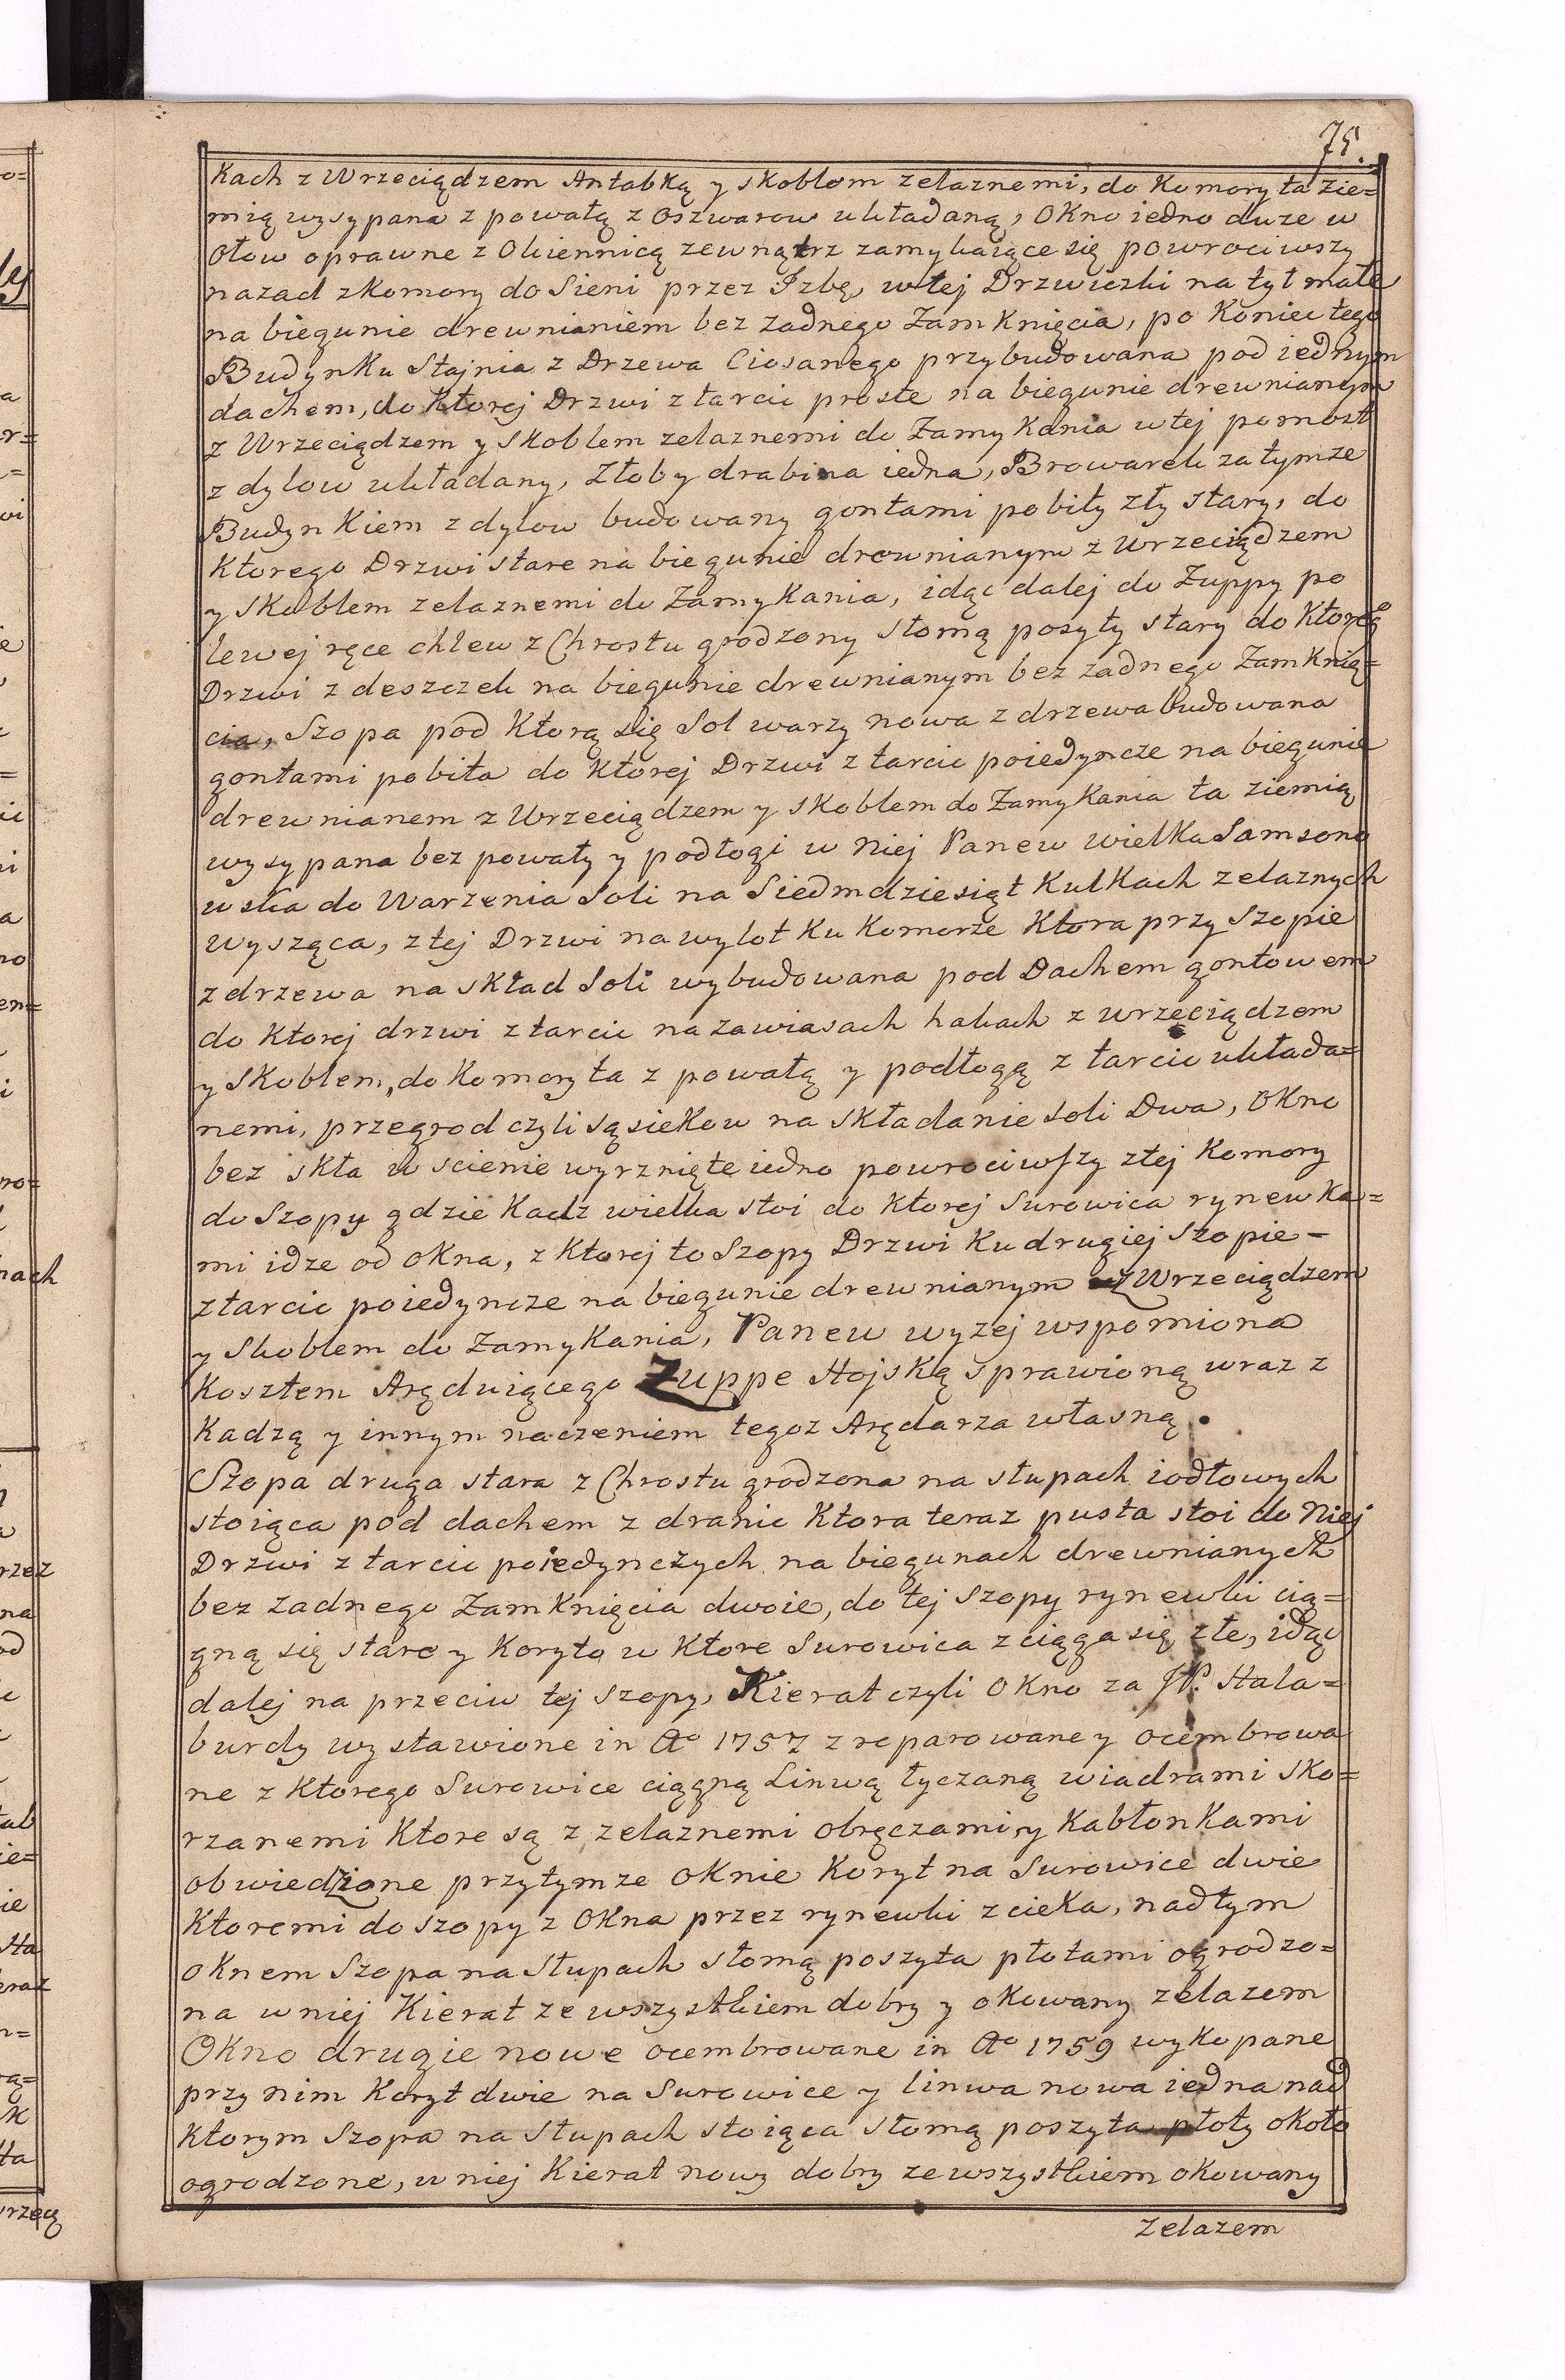 75.
Kach z Wrzeciądzem Antabką y skoblom zelaznemi, do Komory ta zie=
mią wysypana z powałą z oszwarow układaną, okno iedno duze w
ołow oprawne z Okiennicą zewnątrz zamykaiące się powrociwszy
nazad z Komory do Sieni przez Izbę, w tej Drzwiczki na tył małe
na biegunie drewnianiem bez zadnego Zamknięcia, po Koniec tego
Budynku Stajnia z Drzewa Ciosanego przybudowana pod iednym
dachem, do Ktorej Drzwi z tarcic proste na biegunie drewnianym
z Wrzeciądzem y Skoblem zelaznemi do Zamykania w tej pomost
z dylow układany, Złoby drabina iedna, Browarek za tymze
Budynkiem z dylow budowany gontami pobity zły stary, do
Ktorego Drzwi stare na biegunie drewnianym z Wrzeciądzem
y Skoblem zelaznemi do Zamykania, idąc dalej do Zuppy po
lewej ręce chlew z Chrostu grodzony słomą poszyty stary do Ktoreg
Drzwi z deszczek na biegunie drewnianym bez zadnego Zamknię=
cia, Szopa pod Ktorą się Sol warzy nowa z drzewa budowana
gontami pobita do Ktorej Drzwi z tarcic poiedyncze na biegunie
drewnianem z Wrzeciądzem y Skoblem do Zamykania ta ziemią
wysypana bez powały y podłogi w Niej Panew wielka Samsono
wska do Warzenia Soli na Siedmdziesiąt Kulkach zelaznych
wysząca, z tej Drzwi na wylot Ku Komorze Ktora przy Szopie
z drzewa na skład Soli wybudowana pod Dachem gontowem
do Ktorej drzwi z tarcic na zawiasach hakach z wrzeciądzem
y Skoblem, do Komory ta z powałą y podłogą z tarcic układa=
nemi, przegrod czyli sąsiekow na składanie soli Dwa, okno
bez skła w scienie wyrznięte iedno powrociwszy z tej Komory
do Szopy gdzie Kadz wielka stoi do Ktorej Surowica rynewka=
mi idze od okna, z Ktorej to Szopy Drzwi Ku drugiej Szopie -
z tarcic poiedyncze na biegunie drewnianym z Wrzeciądzem
y Skoblem do Zamykania, Panew wyzej wspomiona
Kosztem Aręduiącego Zuppe Hojską sprawioną wraz z
Kadzą y innym naczeniem tegoz Arędarza własną.
Szopa druga stara z Chrostu grodzona na słupach iodłowych
stoiąca pod dachem z dranic Ktora teraz pusta stoi do Niej
Drzwi z tarcic poiedynczych na biegunach drewnianych
bez zadnego Zamknięcia dwoie, do tej Szopy rynewki cią=
gną się stare y Koryto w Ktore Surowica zciąga się złe, idąc
dalej na przeciw tej szopy, Kierat czyli Okno za JP. Hała=
burdy wystawione in Ao 1757 zreparowane y ocembrowa
ne z Ktorego Surowice ciągną Linwą łyczaną wiadrami sko=
rzanemi Ktore są z zelaznemi obręczami y Kabłonkami
obwiedzione przytymze oknie Koryt na Surowice dwie
Ktoremi do szopy z Okna przez rynewki zcieka, nad tym
oknem Szopa na Słupach słomą poszyta płotami ogrodzo=
na w niej Kierat ze wszystkiem dobry y okowany zelazem
Okno drugie nowe ocembrowane in Ao 1759 wykopane
przy nim Koryt dwie na Surowice y linwa nowa iedna nad
Ktorym Szopa na Słupach stoiąca słomą poszyta płoty około
ogrodzone, w niej Kierat nowy dobry ze wszystkiem okowany
zelazem